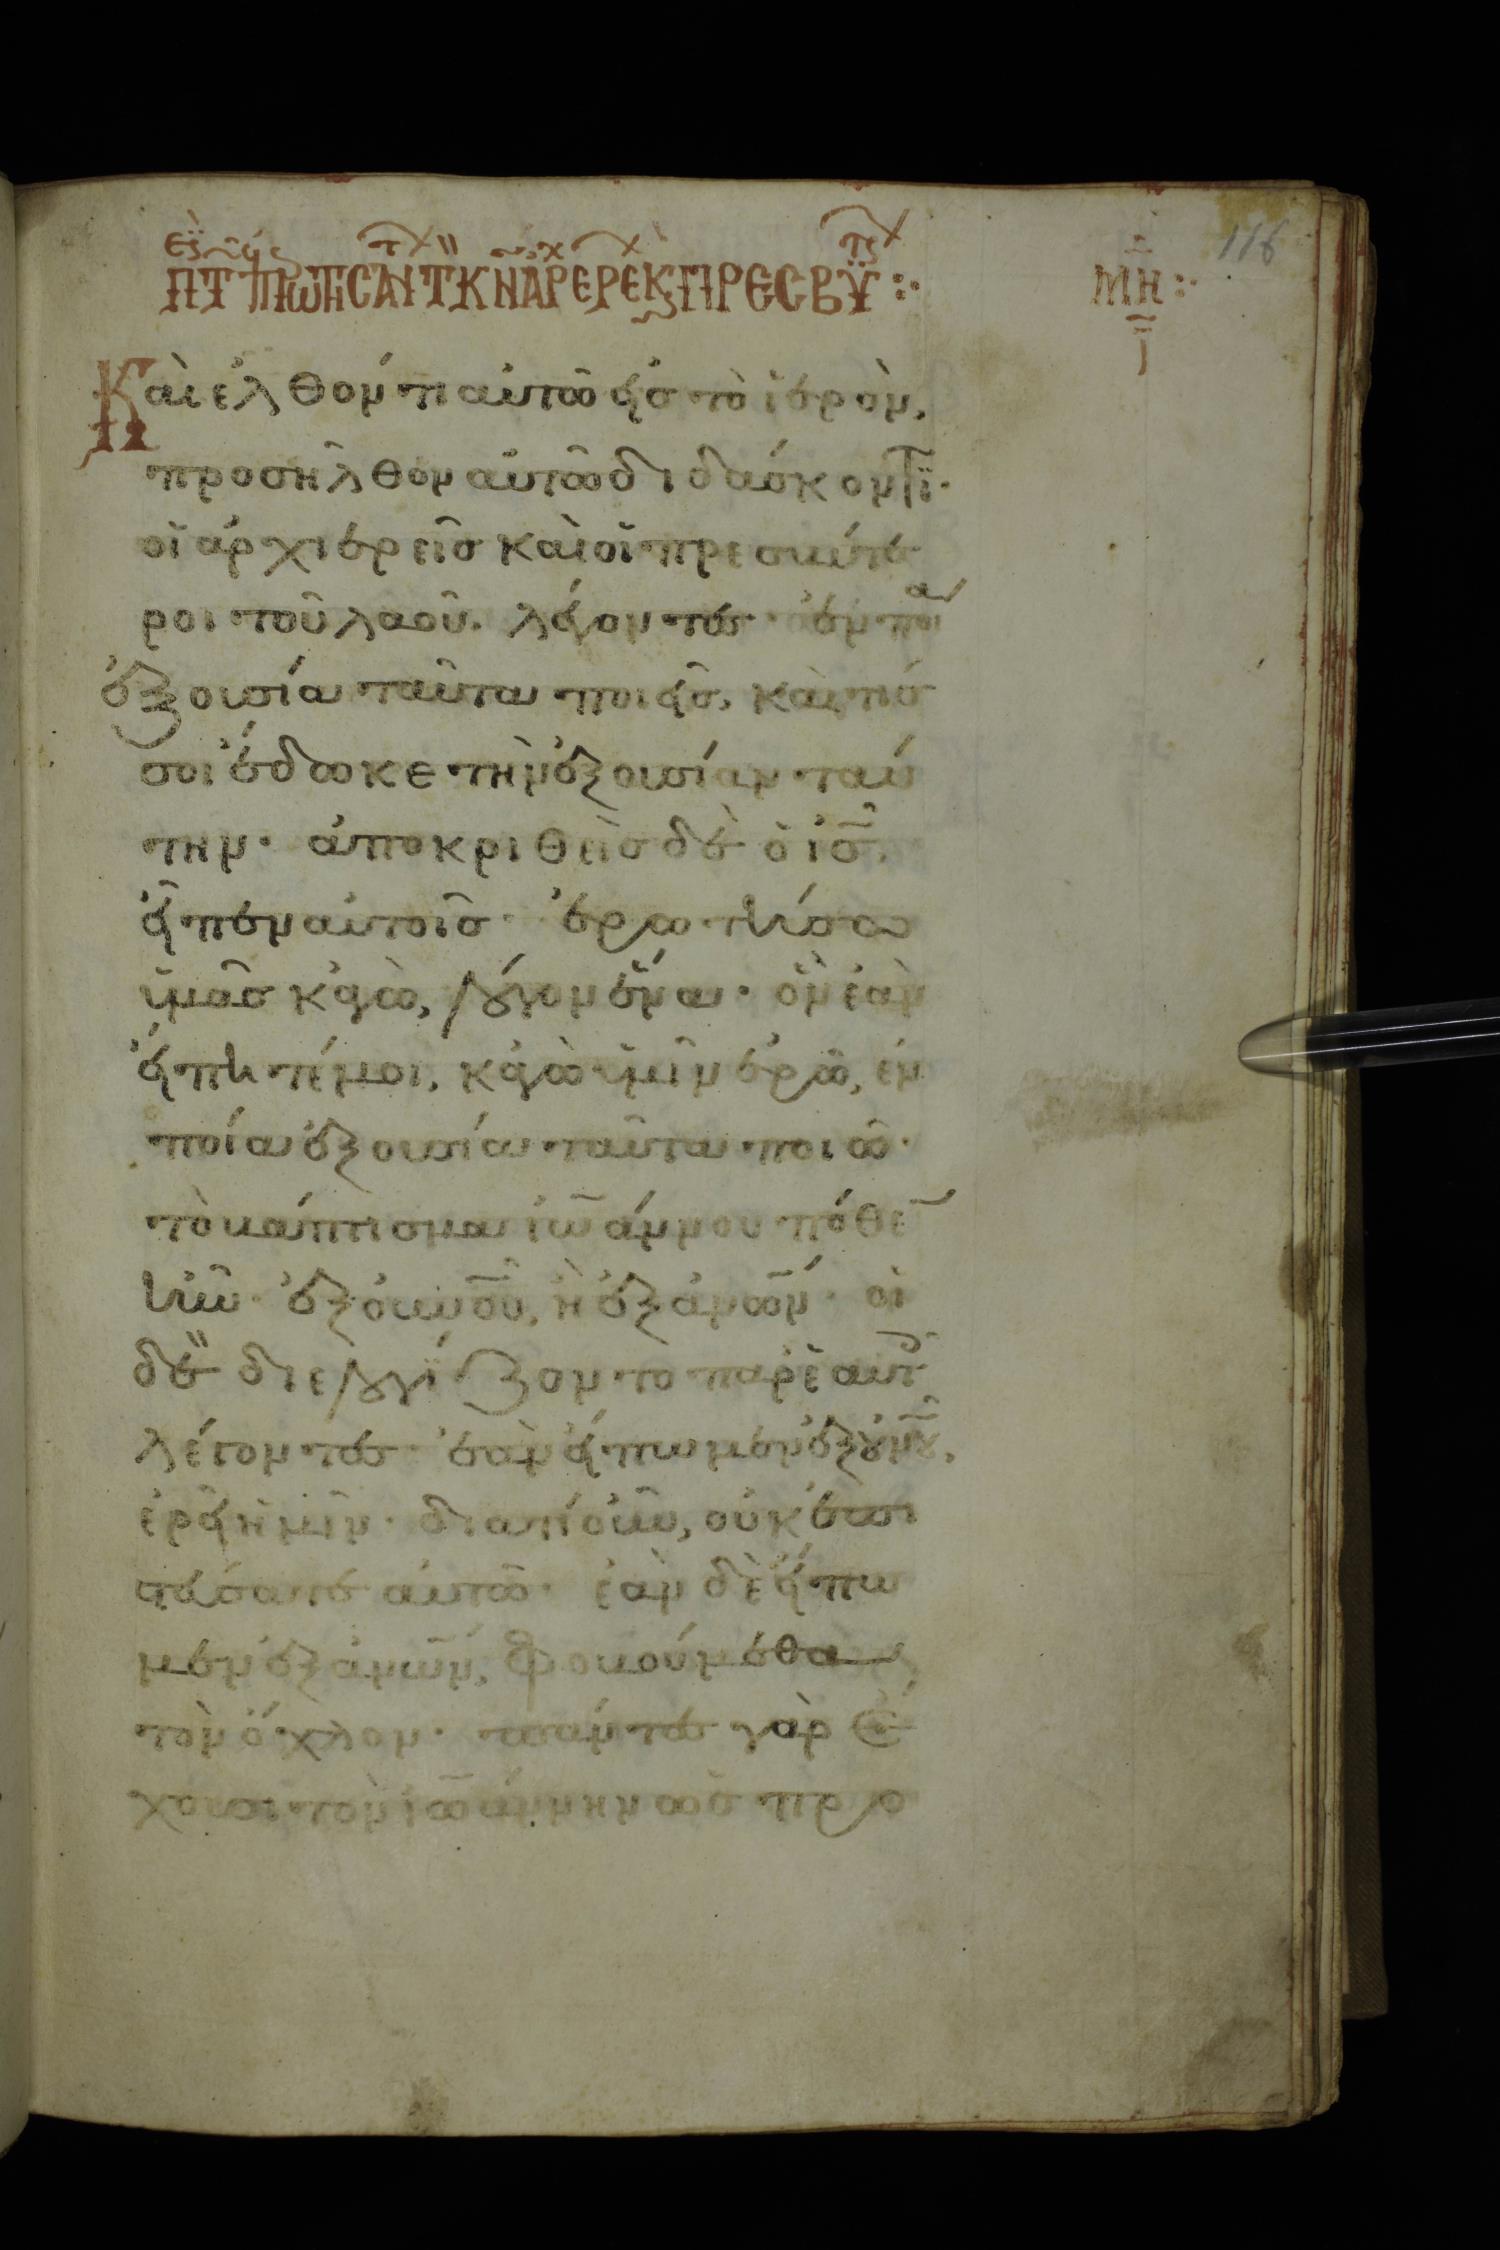 116
ΜΗ
Ι
Καὶ ἐλθόντι αὐτῶ εἰσ τὸ ἱερὸν,
προσῆλθον αὐτῶ διδάσκοντϊ·
οἱ ἀρχιερεῖσ καὶ οἱ πρεσβύτε
ροι τοῦ λαοῦ. λέγοντεσ· ἐν ποία
ἐξουσία ταῦτα ποιεῖσ, καὶ τίσ
σοι ἔδωκε τὴν ἐξουσίαν ταύ
την· ἀποκριθεὶσ δὲ ὁ ἰσ̅,
εἶπεν αὐτοῖσ· ἐρωτήσω
ὑμᾶσ κἀγὼ, λόγον ἕνα· ὃν ἐὰν
εἴπητέ μοι, κἀγὼ ὑμῖν ἐρῶ, ἐν
ποία ἐξουσία ταῦτα ποιῶ·
τὸ βάπτισμα ἰωάννου πόθε̅
ἦν· ἐξ οὐνου̅, ἢ ἐξ ἀνων̅· οἱ
δὲ διελογίζοντο παρ ἑαυτ
λέγοντεσ· ἐὰν εἴπωμεν ἐξ ουνου̅,
ἐρεῖ ἡμῖν· διατί οὖν, οὐκ ἐπι
στεύσατε αὐτῶ· ἐὰν δὲ εἴπω
μεν ἐξ ἀνων̅, φοβούμεθα
τὸν ὄχλον· πάντεσ γὰρ ἔ
χουσι τὸν ἰωάννην ὡσ προ